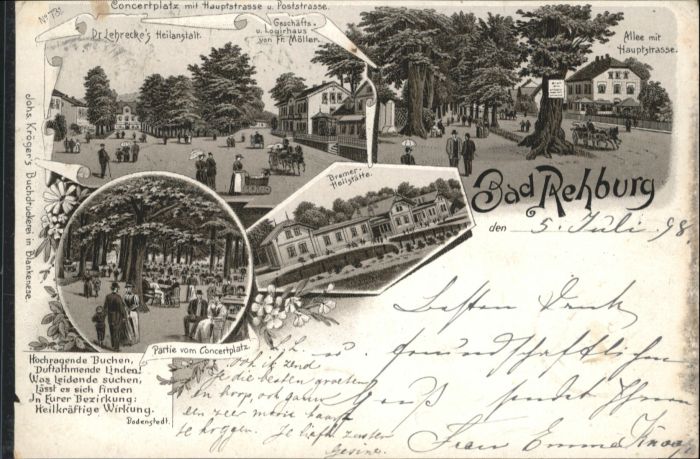 No 731
Concertplatz mit Hauptstrasse u. Poststrasse.
Dr Lehrecke's Heilanstalt.
Geschäfts-
u. Logirhaus
von Fr. Möller.
Allee mit
Hauptstrasse.
Johs. Kröger's Buchdruckerei in Blankenese.
Bremer-
Heilstätte.
Bad Rehburg
den 5. Juli 98
Partie vom Concertplatz.
Hochragende Buchen,
Duftathmende Linden!
Was Leidende suchen,
Lässt es sich finden
In Eurer Bezirkung:
Heilkräftige Wirkung.
Bodenstedt.
Besten Dank
u. freundschaftlichen
Gruß sendet Ihnen
Frau Emma
ook ik zend
je die besten groeten
en hoop, ook gauw
een zeer mooie kaart
te krijgen. Je liefh. zuster
Gesina.